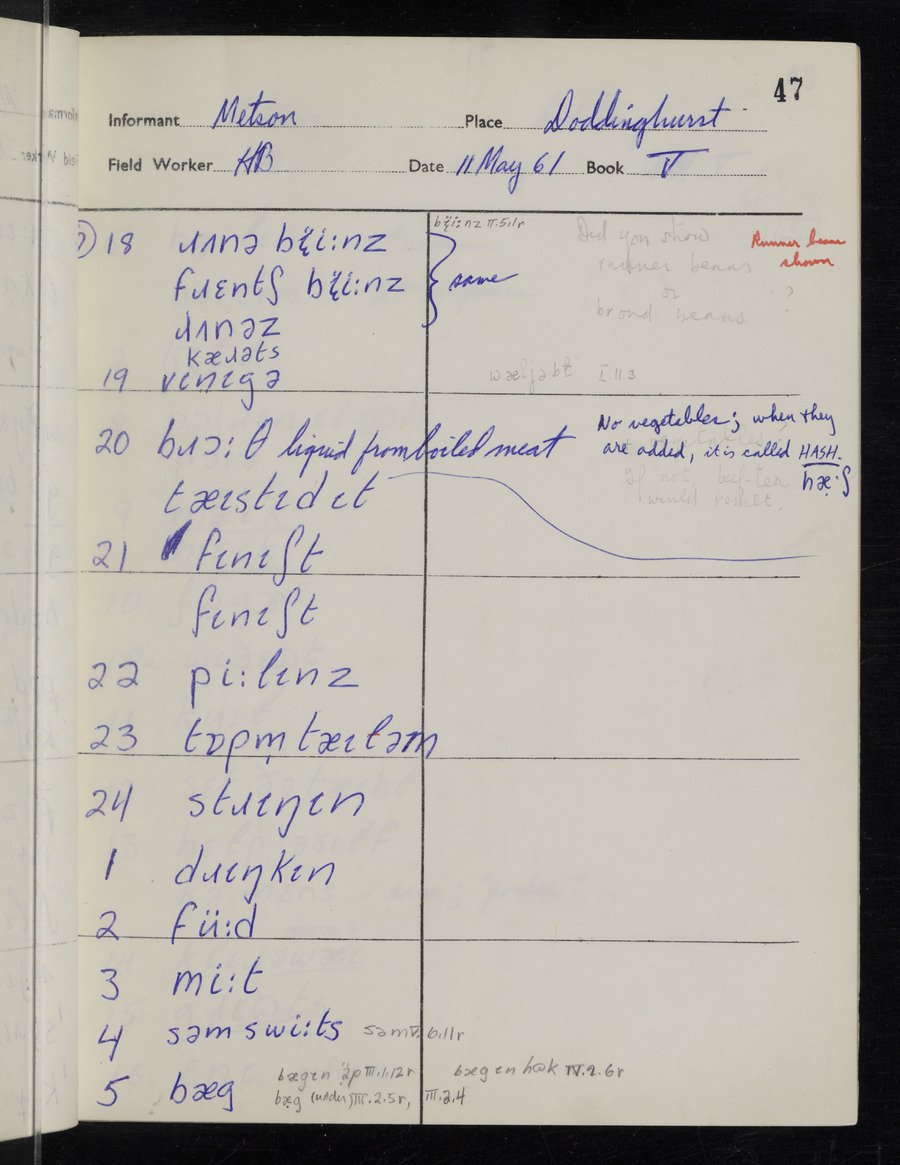 47
Informant Metson Place Doddinghurst
Field Worker HB Date 11 May 61 Book V
18 ɹʌnə bɪ̈i:nz
bɪ̈i:nz V.5.1r
Did you show runner beans or broad beans ?
Runner beans shown
fɹɛntʃ bɪ̈i:nz } same
ɹʌnəz
kæɹəts
19 vɩnɩgə
wæljəbɫ I.11.3
20 bɹɔ:θ liquid from boiled meat
No vegetables; when they
are added, it is called HASH.
hæ·ʃ
If not, beef-tea
would result.
tæɪstɪd ɪt
21 fɪnɪʃt
fɪnɪʃt
22 pi:lɪnz
23 tɒpm̩ tæɪləm
24 stɹɪŋɪn
1 dɹɪŋkɪn
2 fü:d
3 mi:t
4 səm swi:ts səm V.6.11r
5 bæg
bægɪn ʌ̈p III.1.12r bægɪn hʊk IV.2.6r
bæg (under) III.2.5r, III.2.4